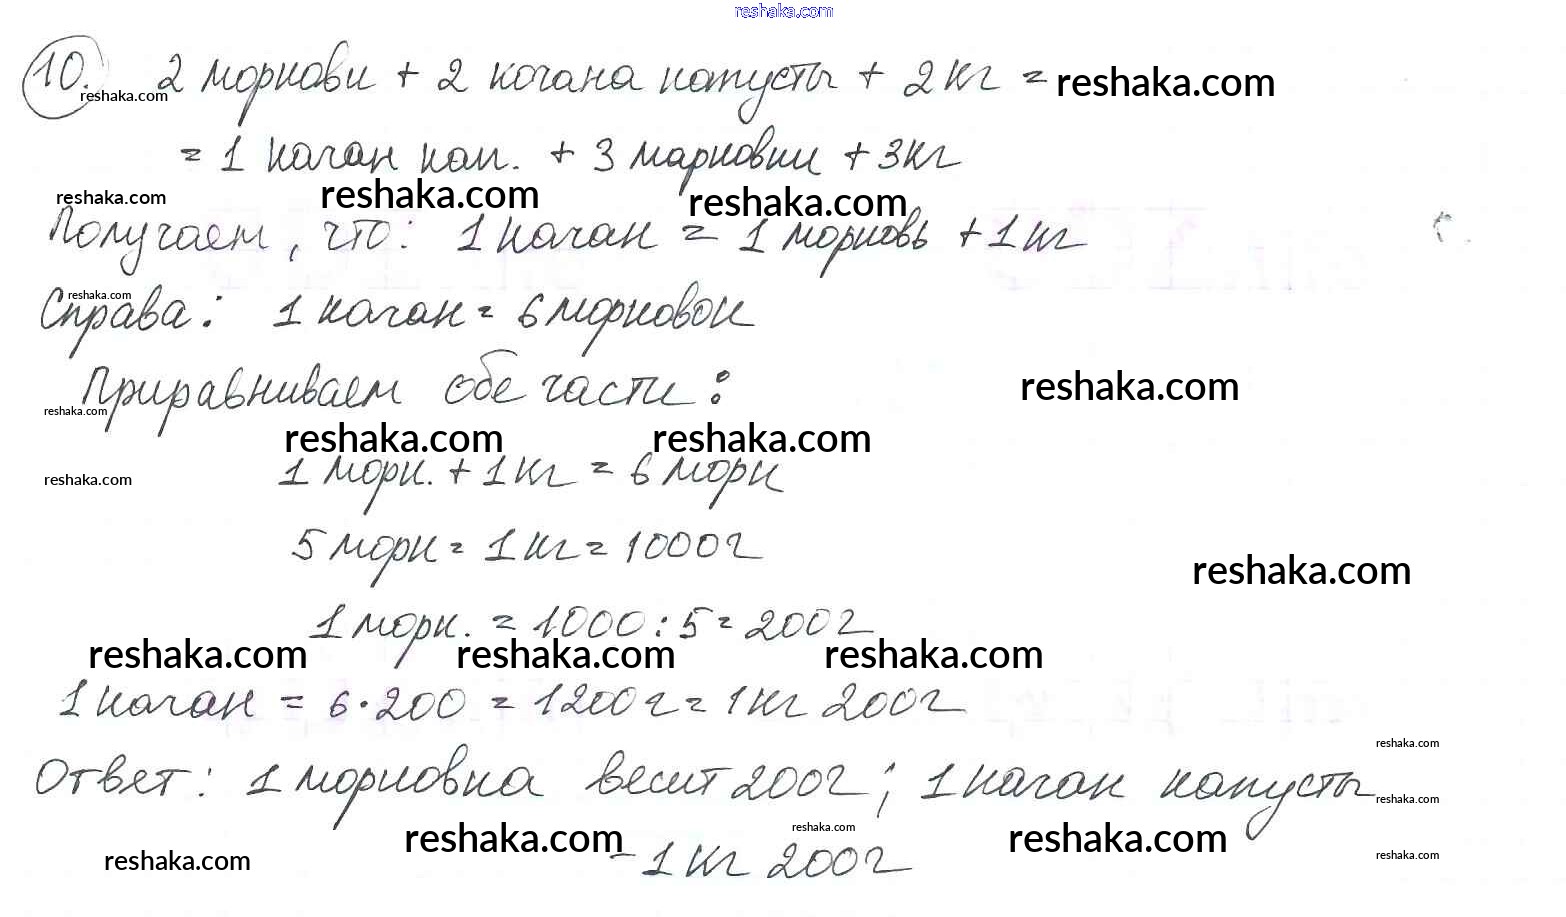 reshaka.com
10. 2 моркови + 2 кочана капусты + 2 кг = reshaka.com
reshaka.com
= 1 качан кап. + 3 марковки + 3кг
reshaka.com reshaka.com reshaka.com
Получаем, что: 1 качан = 1 морковь + 1 кг
reshaka.com
Справа: 1 качан = 6 морковок
Приравниваем обе части: reshaka.com
reshaka.com
reshaka.com reshaka.com
1 морк. + 1 кг = 6 морк
reshaka.com
5 морк = 1 кг = 1000г
reshaka.com
1 морк. = 1000 : 5 = 200г
reshaka.com reshaka.com reshaka.com
1 качан = 6 · 200 = 1200 г = 1 кг 200г
reshaka.com
Ответ: 1 морковка весит 200г; 1 качан капусты reshaka.com
reshaka.com reshaka.com reshaka.com
- 1 кг 200г
reshaka.com reshaka.com